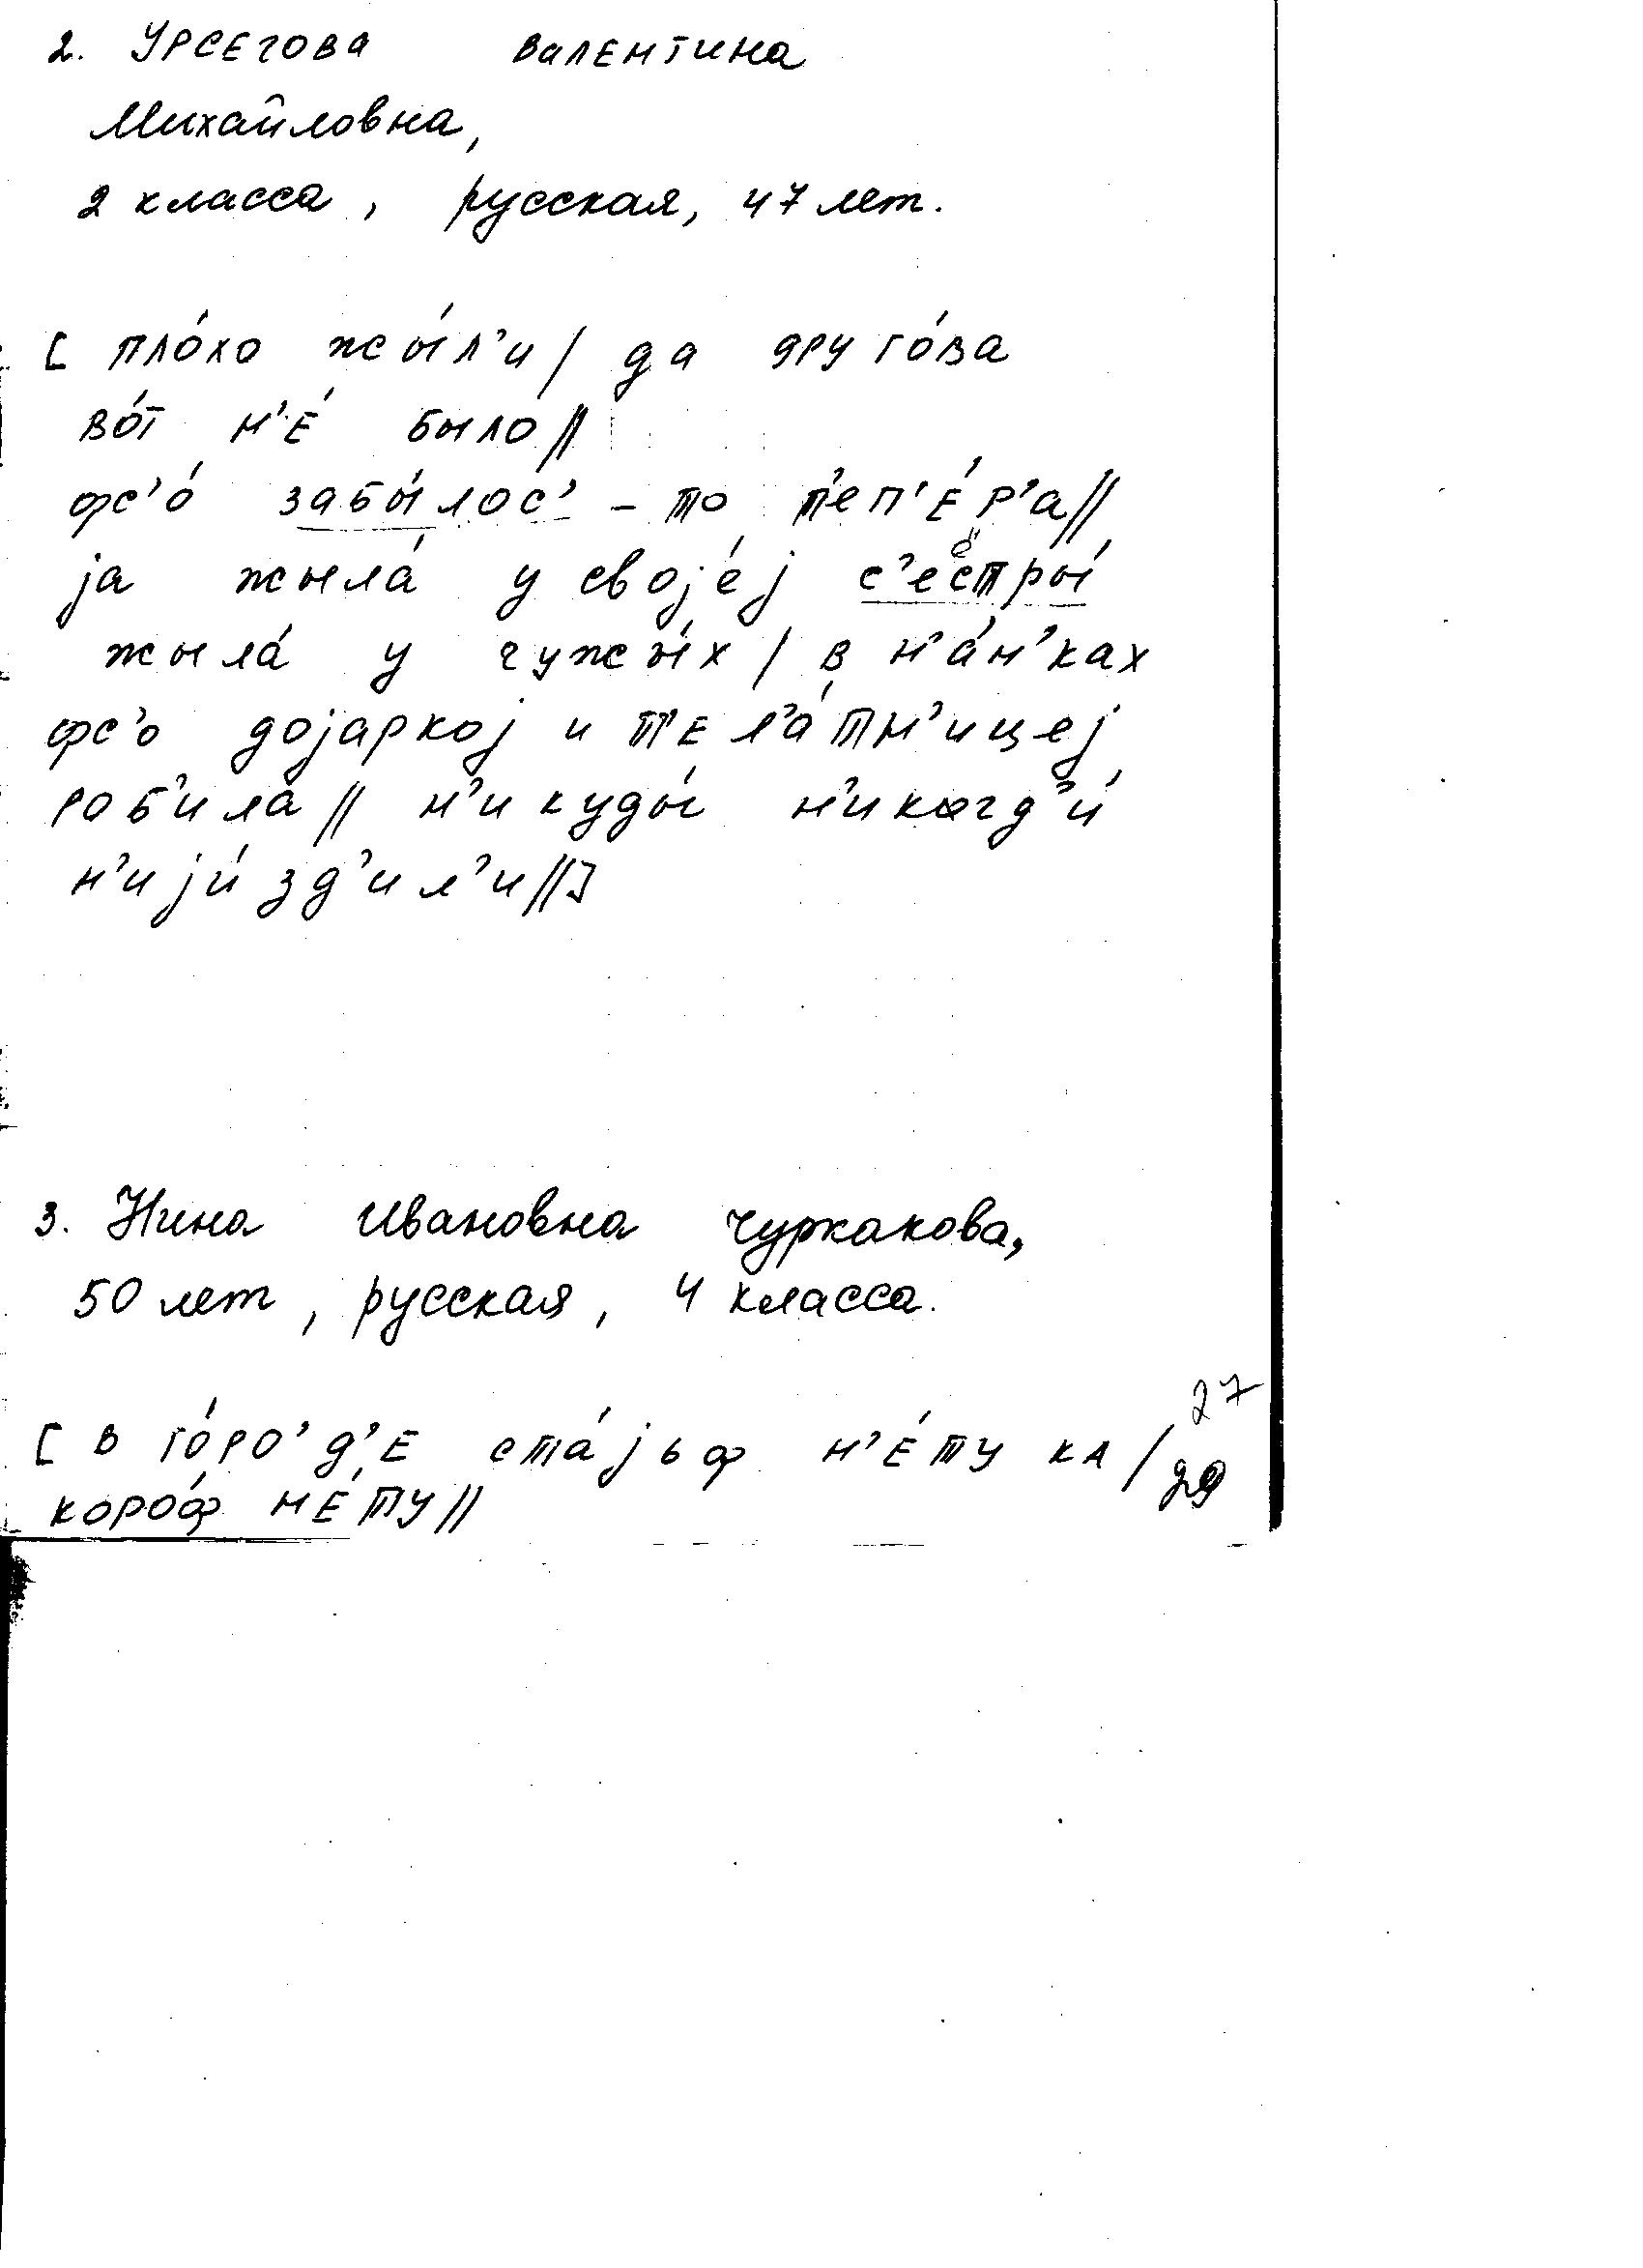 2. Урсегова Валентина
Михайловна,
2 класса, русская, 47 лет.
[ пло́хо жы́л'и / да друго́ва
во́т н'е́ было //
фс'о́ забы́лос' - то т'еп'е́р'а //
ја жыла́ у својéј с'естры́
жыла́ у чужы́х / в н'а́н'ках
фс'о дојаркој и т'ел'а́тн'ицеј
роб'ила // н'икуды́ н'икогд'и́
н'ији́зд'ил'и // ]
3. Нина Ивановна Чуркакова,
50 лет, русская, 4 класса.
27
[ в го́ро'д'е ста́јьф н'е́ту ка /
29
коро́ф не́ту //